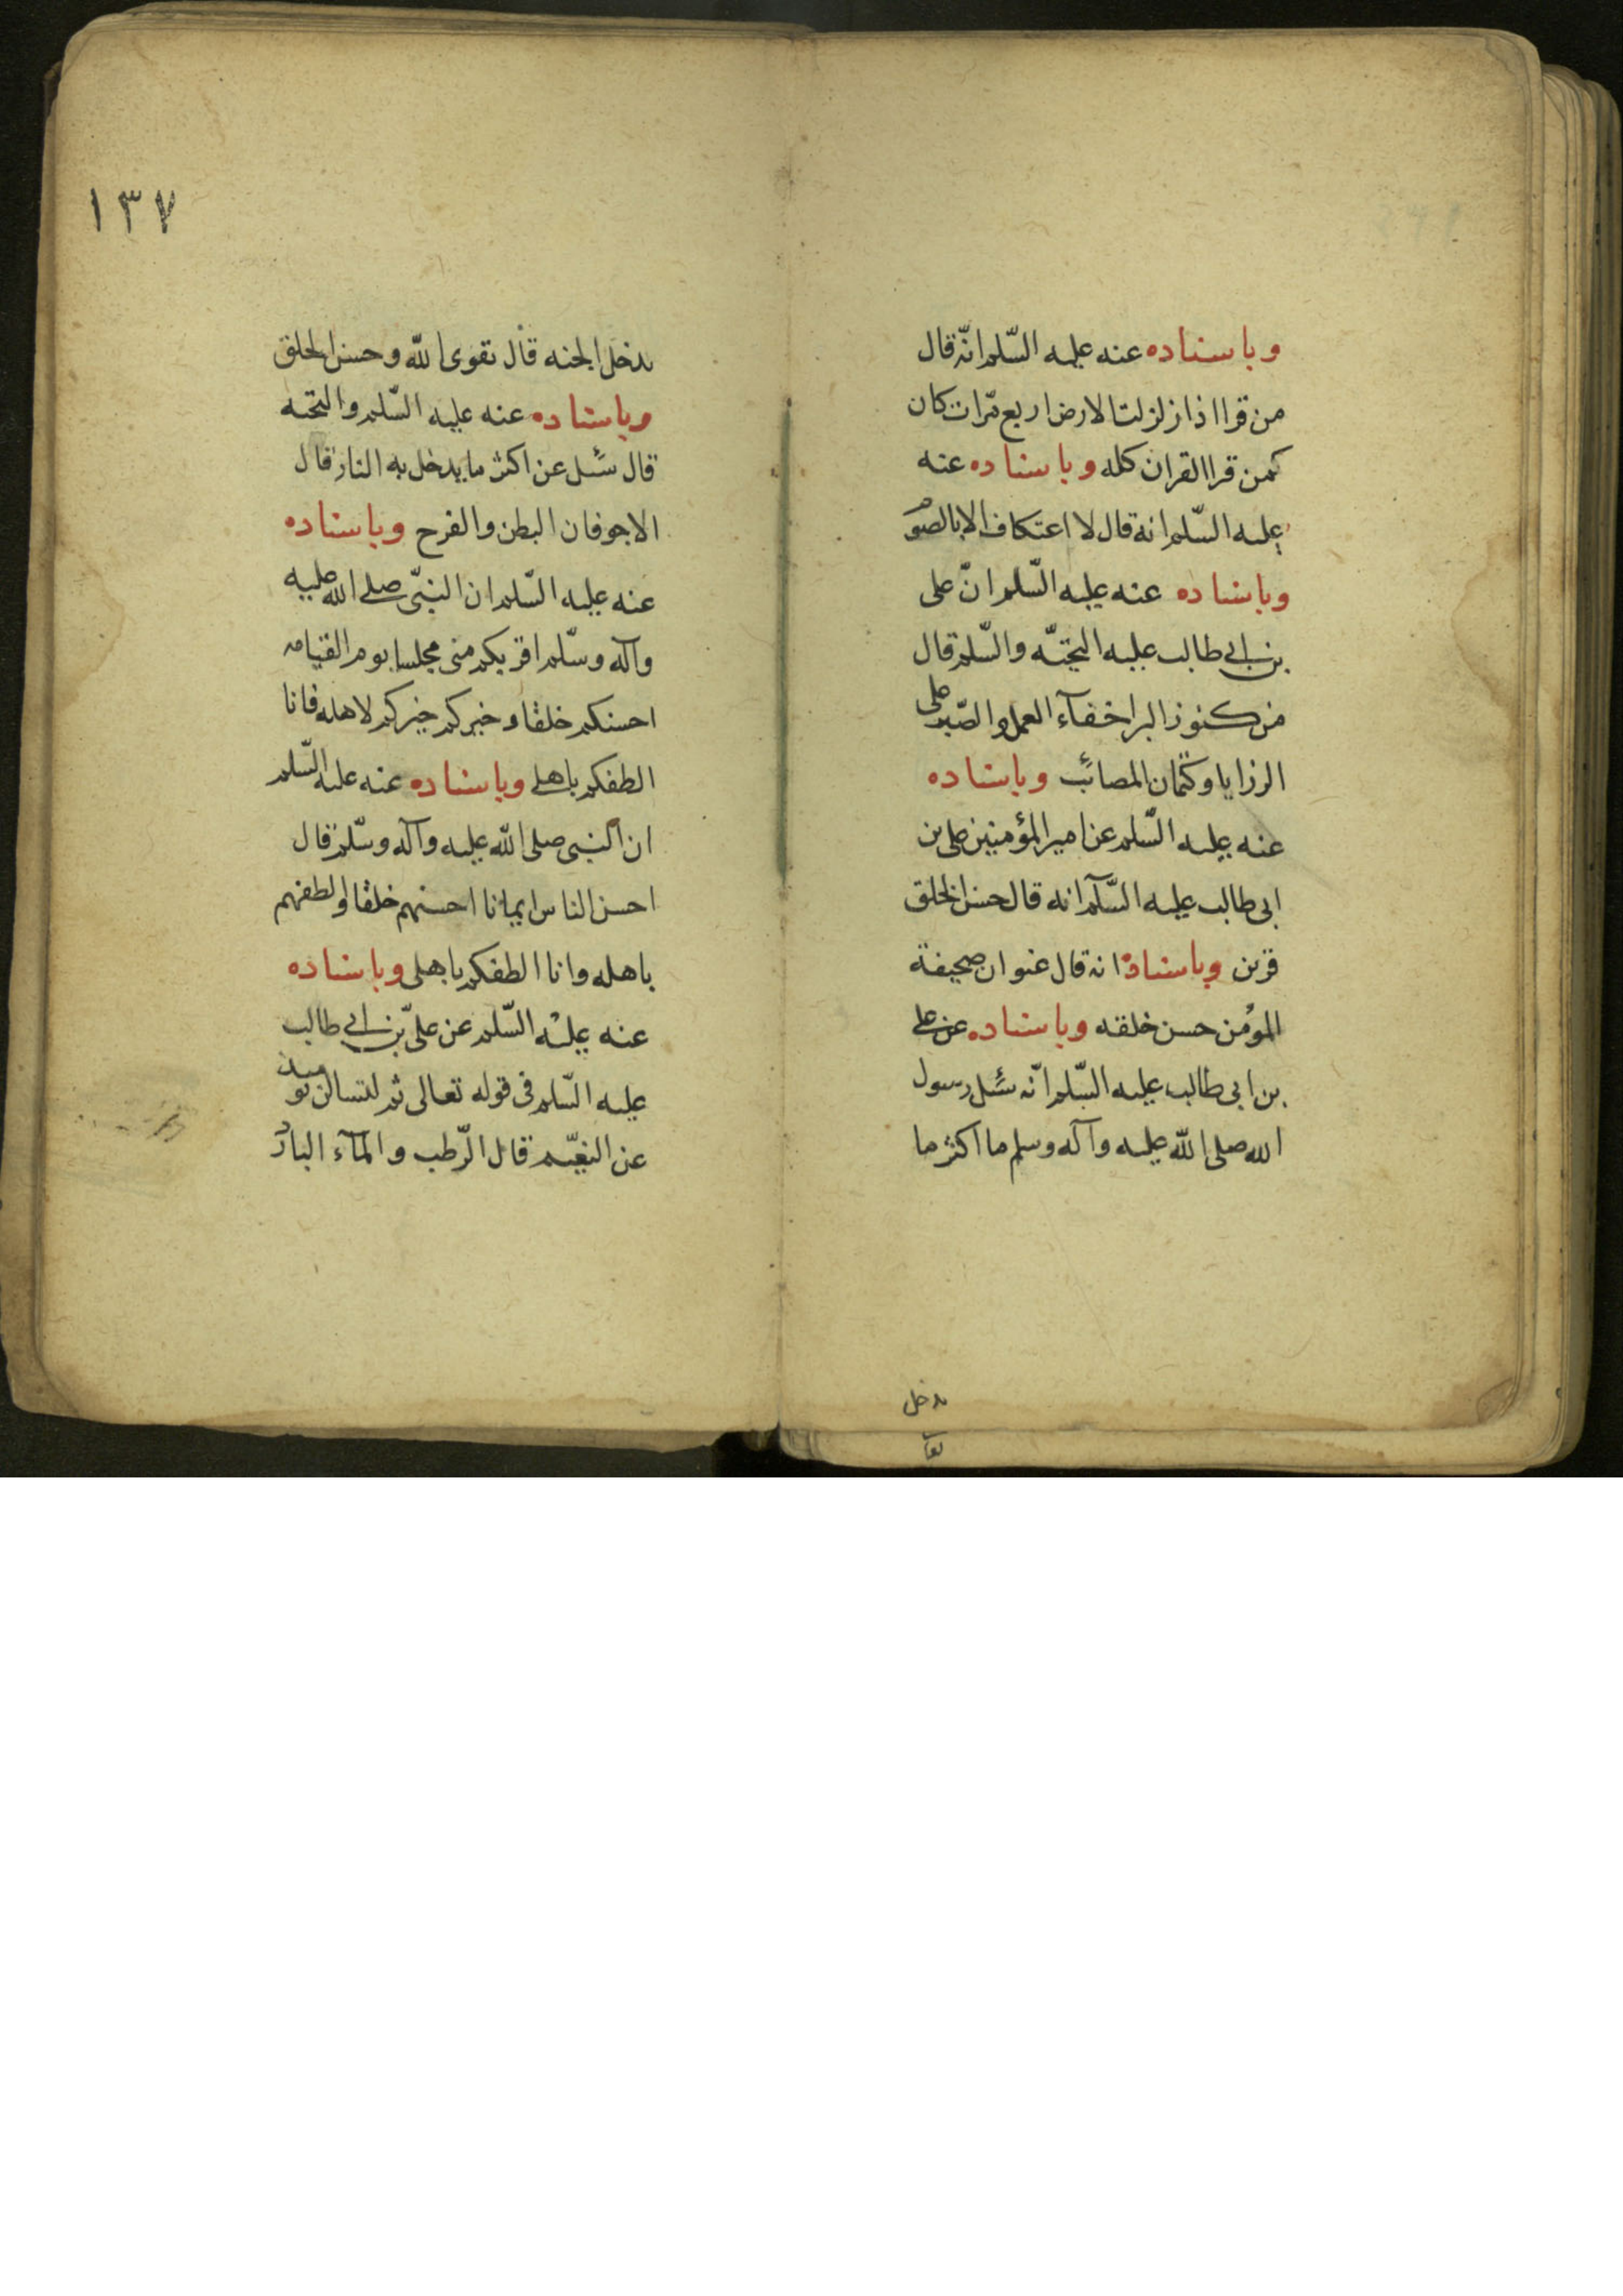 وباسناده عنه عليه السّلم انّه قال
من قرا اذا زلزلت الارض اربع مّرات كان
كمن قرا القران كله وباسناده عنه
عليه السّلم انه قال لا اعتكاف الا بالصوم
وباسناده عنه عليه السّلم انّ على
بن ابي طالب عليه التحيّه والسّلم قال
من كنوز البر اخفآء العمل والصّبر على
الرزايا وكتمان المصائب وباسناده
عنه عليه السّلم عن امير المؤمنين على بن
ابى طالب عليه السّلآم انه قال حسن الخلق
قرين وباسناده انه قال عنوان صحيفة
المؤمن حسن خلقه وباسناده عن على
بن ابى طالب عليه السّلم انّه سُئل رسول
الله صلى الله عليه وآله وسلم ما اكثر ما
يدخل
١٣٧
يدخل الجنه قال تقوى الله وحسن الخلق
وباسناده عنه عليه السّلم والتحيه
قال سُئل عن اكثر ما يدخل به النار قال
الاجوفان البطن والفرج وباسناده
عنه عليه السّلم ان النبّى صلى الله عليه
وآله وسّلم اقربكم منى مجلسا يوم القيامه
احسنكم خلقا وخيركم خيركم لاهله فانا
الطفكم باهلى وباسناده عنه عليه السّلم
ان النبى صلى الله عليه وآله وسّلم قال
احسن الناس ايمانا احسنهم خلقا والطفهم
باهله وانا الطفكم باهلى وباسناده
عنه عليه السّلم عن علىّ بن ابي طالب
عليه السّلم فى قوله تعالى ثم لتسالن يومئذ
عن النعيّم قال الرّطب والمآء البارد